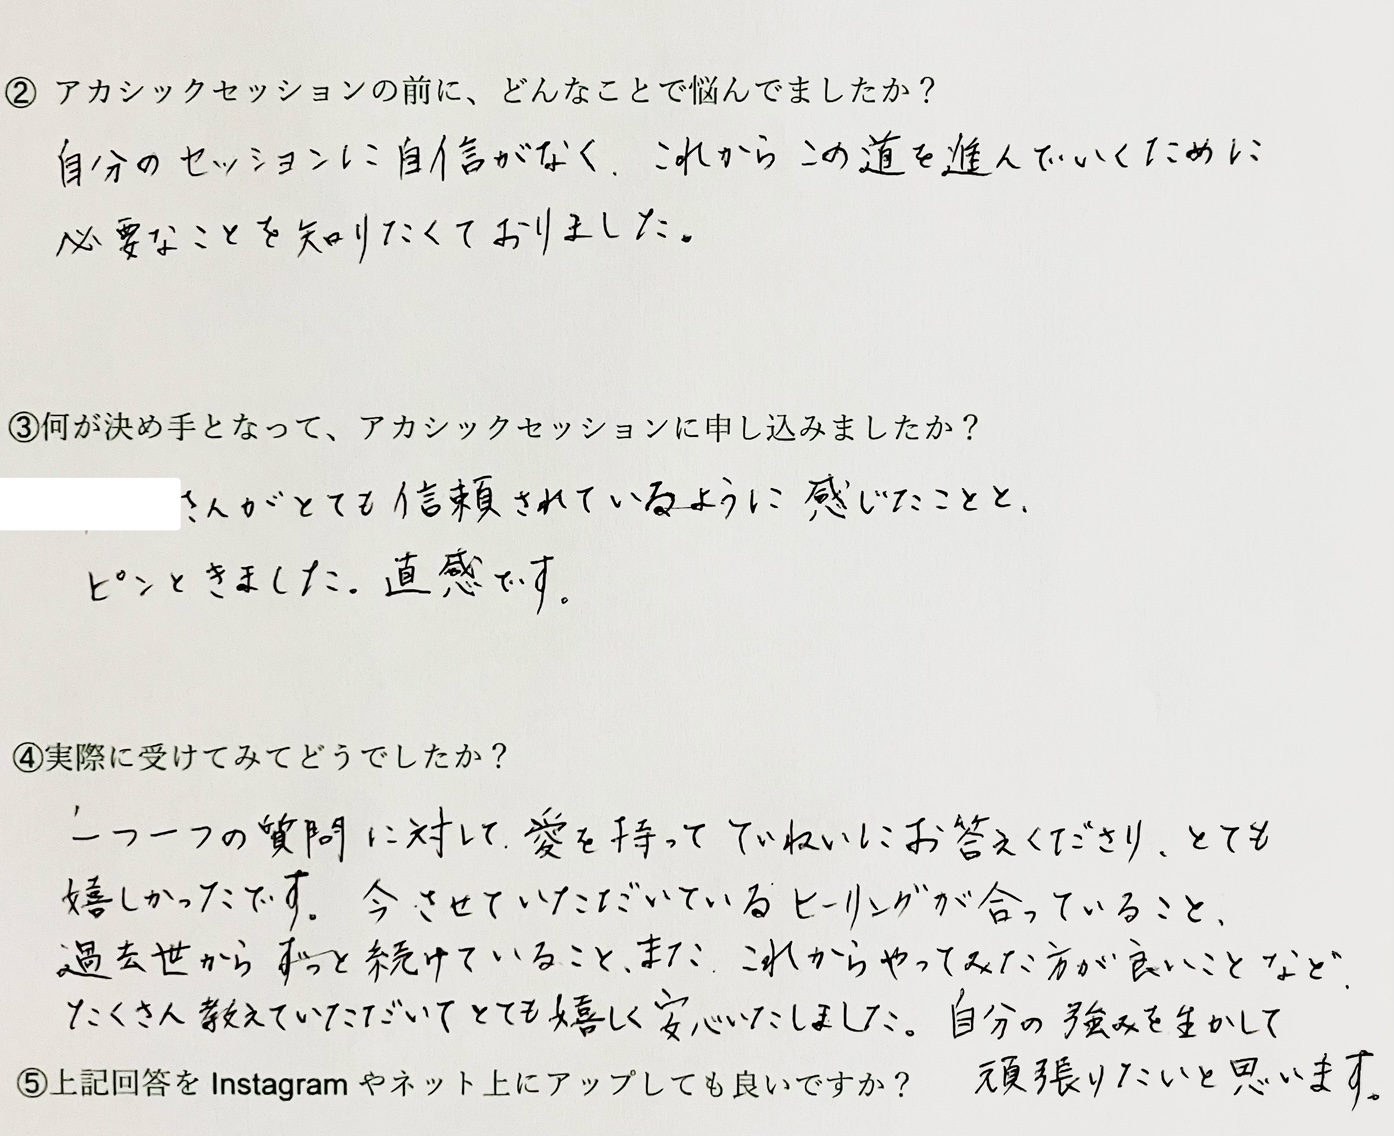 ② アカシックセッションの前に、どんなことで悩んでましたか？
自分のセッションに自信がなく、これからこの道を進んでいくために
必要なことを知りたくておりました。
③何が決め手となって、アカシックセッションに申し込みましたか？
さんがとても信頼されているように感じたことと、
ピンときました。直感です。
④実際に受けてみてどうでしたか？
一つ一つの質問に対して、愛を持ってていねいにお答えくださり、とても
嬉しかったです。今させていただいているヒーリングが合っていること、
過去世からずっと続けていること、また、これからやってみた方が良いことなど、
たくさん教えていただいてとても嬉しく安心いたしました。自分の強みを生かして
頑張りたいと思います。
⑤上記回答を Instagram やネット上にアップしても良いですか？